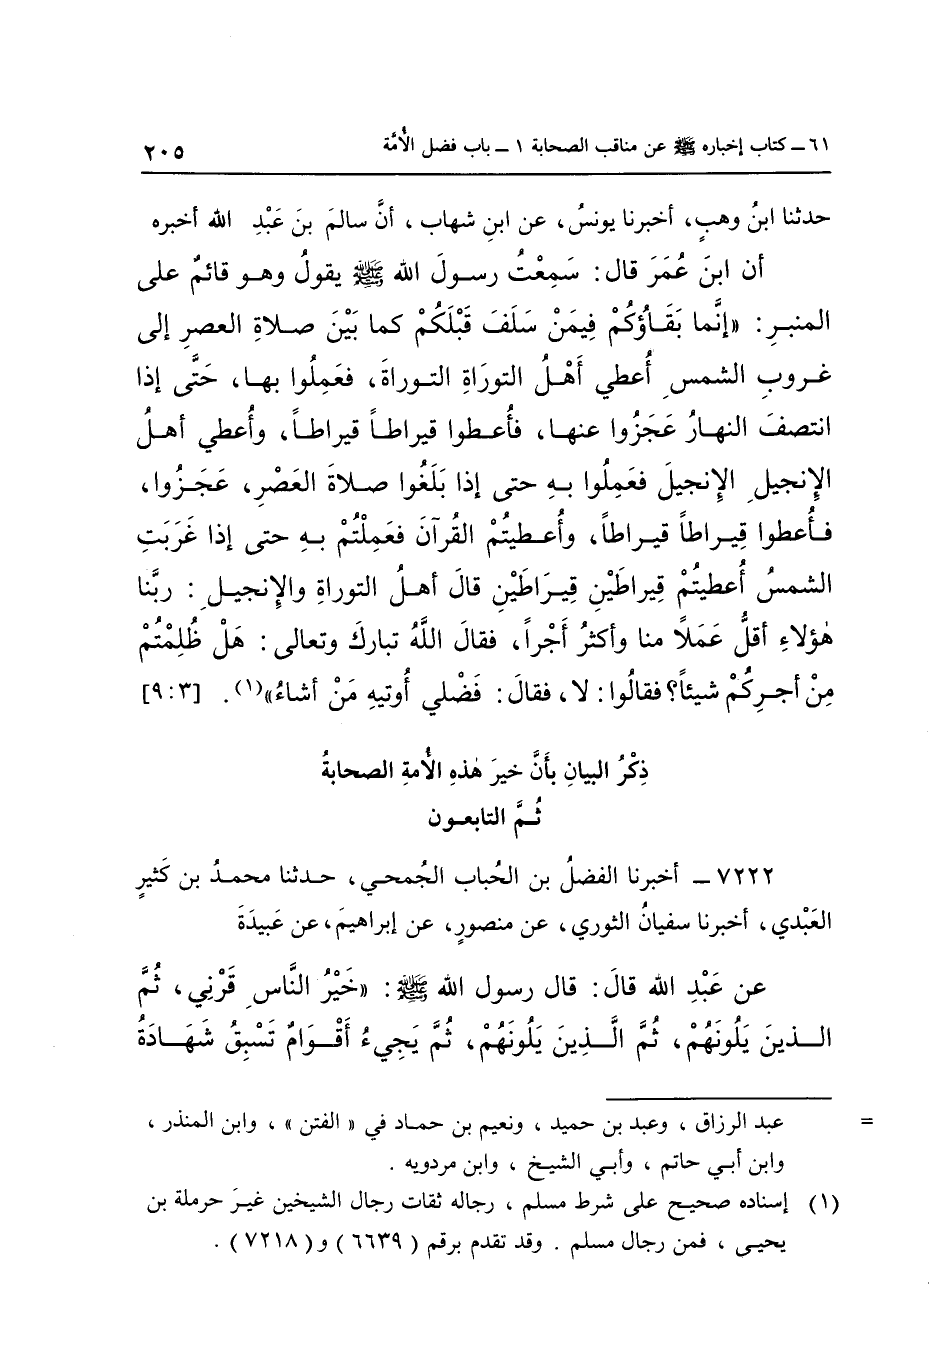 ٦١ ــ كتاب إخباره ﷺ عن مناقب الصحابة ١ ــ باب فضل الأُمَّة ٢٠٥
حدثنا ابنُ وهبٍ، أخبرنا يونسُ، عن ابنِ شهاب، أنَّ سالمَ بنَ عَبْدِ الله أخبره
أن ابنَ عُمَرَ قال: سَمِعْتُ رسولَ الله ﷺ يقولُ وهو قائمٌ على
المنبرِ: «إنَّما بَقَاؤُكُمْ فِيمَنْ سَلَفَ قَبْلَكُمْ كما بَيْنَ صلاةِ العصرِ إلى
غروبِ الشمسِ أُعطي أَهْلُ التورَاةِ التوراةَ، فعَمِلُوا بها، حَتَّى إذا
انتصفَ النهارُ عَجَزُوا عنها، فأُعطوا قيراطاً قيراطاً، وأُعطي أهلُ
الإنجيلِ الإنجيلَ فعَمِلُوا بهِ حتى إذا بَلَغُوا صلاةَ العَصْرِ، عَجَزُوا،
فأُعطوا قِيراطاً قيراطاً، وأُعطيتُمْ القُرآنَ فعَمِلْتُمْ بهِ حتى إذا غَرَبَتِ
الشمسُ أُعطيتُمْ قِيراطَيْنِ قِيرَاطَيْنِ قالَ أهلُ التوراةِ والإنجيلِ: ربَّنا
هٰؤلاءِ أقلُّ عَمَلًا منا وأكثرُ أَجْراً، فقالَ اللَّهُ تباركَ وتعالى: هَلْ ظُلِمْتُمْ
مِنْ أجرِكُمْ شيئاً؟ فقالُوا: لا، فقالَ: فَضْلي أُوتيهِ مَنْ أشاءُ»(١). [٩:٣]
ذِكْرُ البيانِ بأنَّ خيرَ هٰذهِ الأُمةِ الصحابةُ
ثُمَّ التابعون
٧٢٢٢ ــ أخبرنا الفضلُ بن الحُباب الجُمحي، حدثنا محمدُ بن كَثيرٍ
العَبْدي، أخبرنا سفيانُ الثوري، عن منصورٍ، عن إبراهيمَ، عن عَبيدَةَ
عن عَبْدِ الله قالَ: قال رسول الله ﷺ: «خَيْرُ النَّاسِ قَرْنِي، ثُمَّ
الذينَ يَلُونَهُمْ، ثُمَّ الَّذِينَ يَلُونَهُمْ، ثُمَّ يَجِيءُ أَقْوَامٌ تَسْبِقُ شَهَادَةُ
= عبد الرزاق، وعبد بن حميد، ونعيم بن حماد في «الفتن»، وابن المنذر،
وابن أبي حاتم، وأبي الشيخ، وابن مردويه.
(١) إسناده صحيح على شرط مسلم، رجاله ثقات رجال الشيخين غيرَ حرملة بن
يحيى، فمن رجال مسلم. وقد تقدم برقم (٦٦٣٩) و(٧٢١٨).